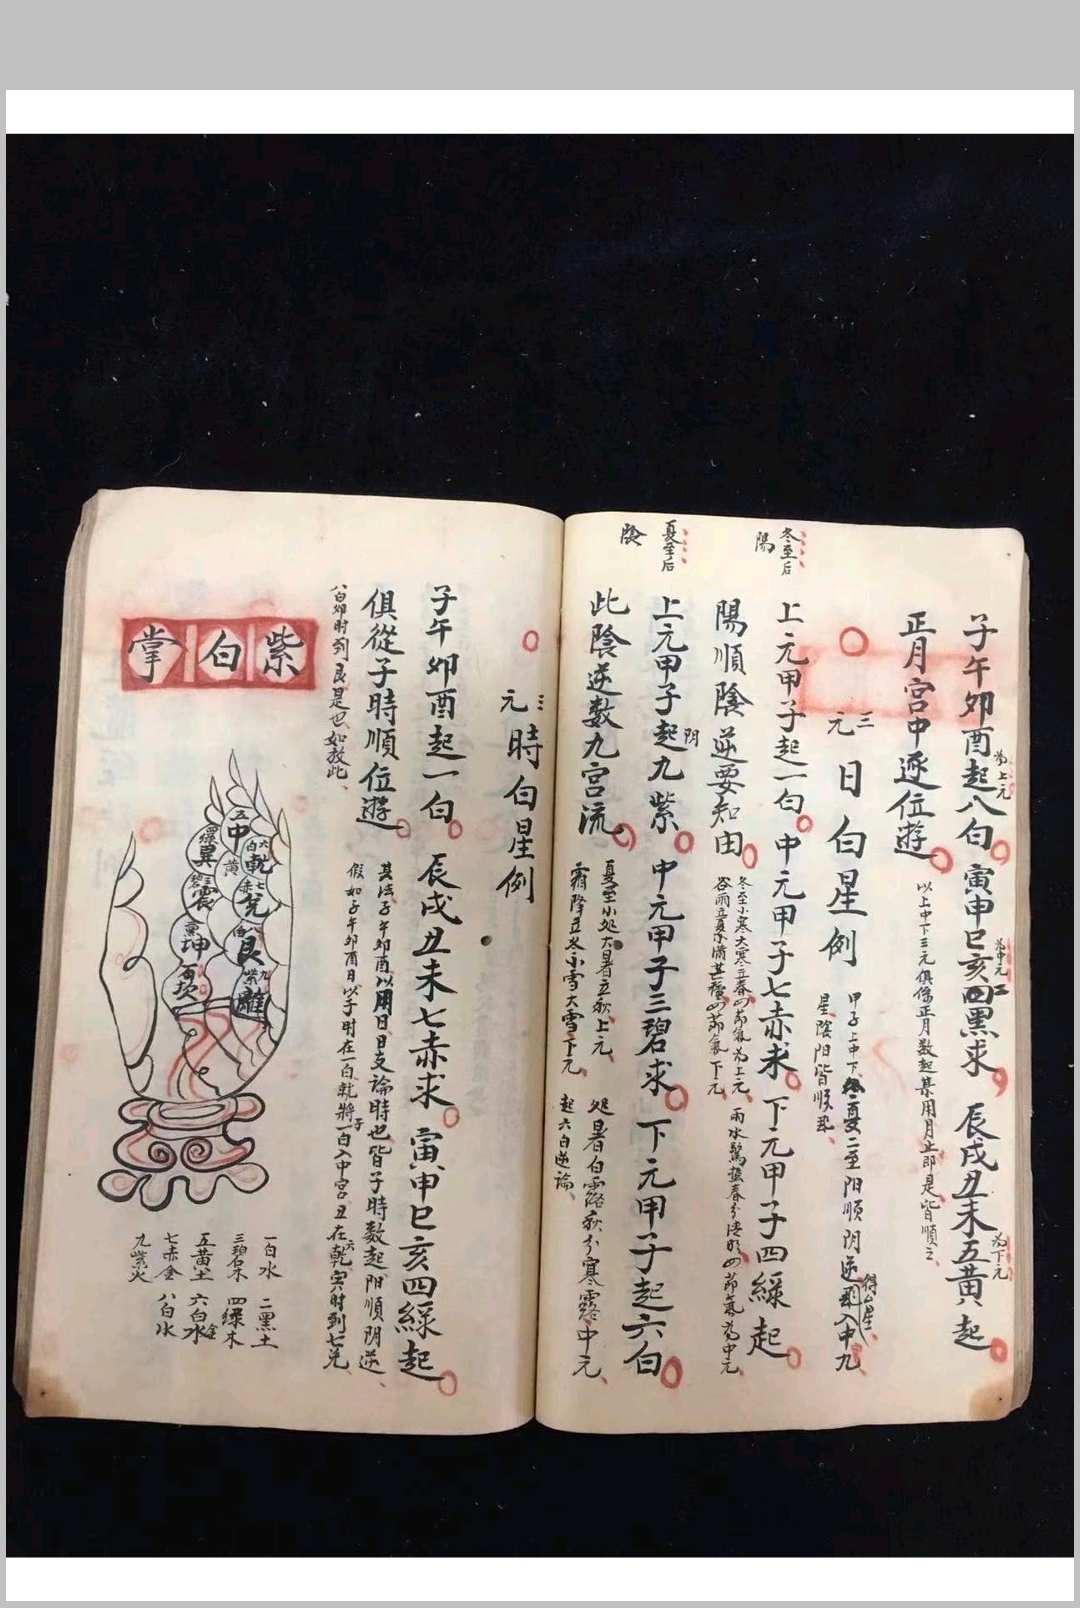 子午卯酉起八白 寅申巳亥四黑求 辰戌丑未五黃起
為上元
為中元
為下元
正月宮中逐位遊
以上中下三元俱係正月数起某用月止即是皆順之
三元日白星例
甲子上中下冬夏二至阳順阴逆
入中九
得此星
星陰阳皆順飛
冬至后
陽
上元甲子起一白 中元甲子七赤求 下元甲子四綠起
陽順陰逆要知由
冬至小寒大寒立春四節氣為上元 雨水驚蟄春分清明四節氣為中元
谷雨立夏小满芒種四節氣下元
夏至后
陰
上元甲子起九紫 中元甲子三碧求 下元甲子起六白
阴
此陰逆数九宮流
夏至小処大暑立秋上元 処暑白露秋分寒露中元
霜降立冬小雪大雪下元 起六白逆論
三元時白星例
子午卯酉起一白 辰戌丑未七赤求 寅申巳亥四綠起
俱從子時順位遊
其法子午卯酉以用日日支論時也皆子時数起阳順阴逆
假如子午卯酉日以子时在一白就將一白入中宮丑在乾六寅时到七兑
子
八白卯时到艮是也如放此
紫白掌
五中黃
六白乾
七赤兌
艮
九紫離
巽
震
坤
一白水 二黑土
三碧木 四綠木
五黃土 六白水
金
七赤金 八白水
九紫火